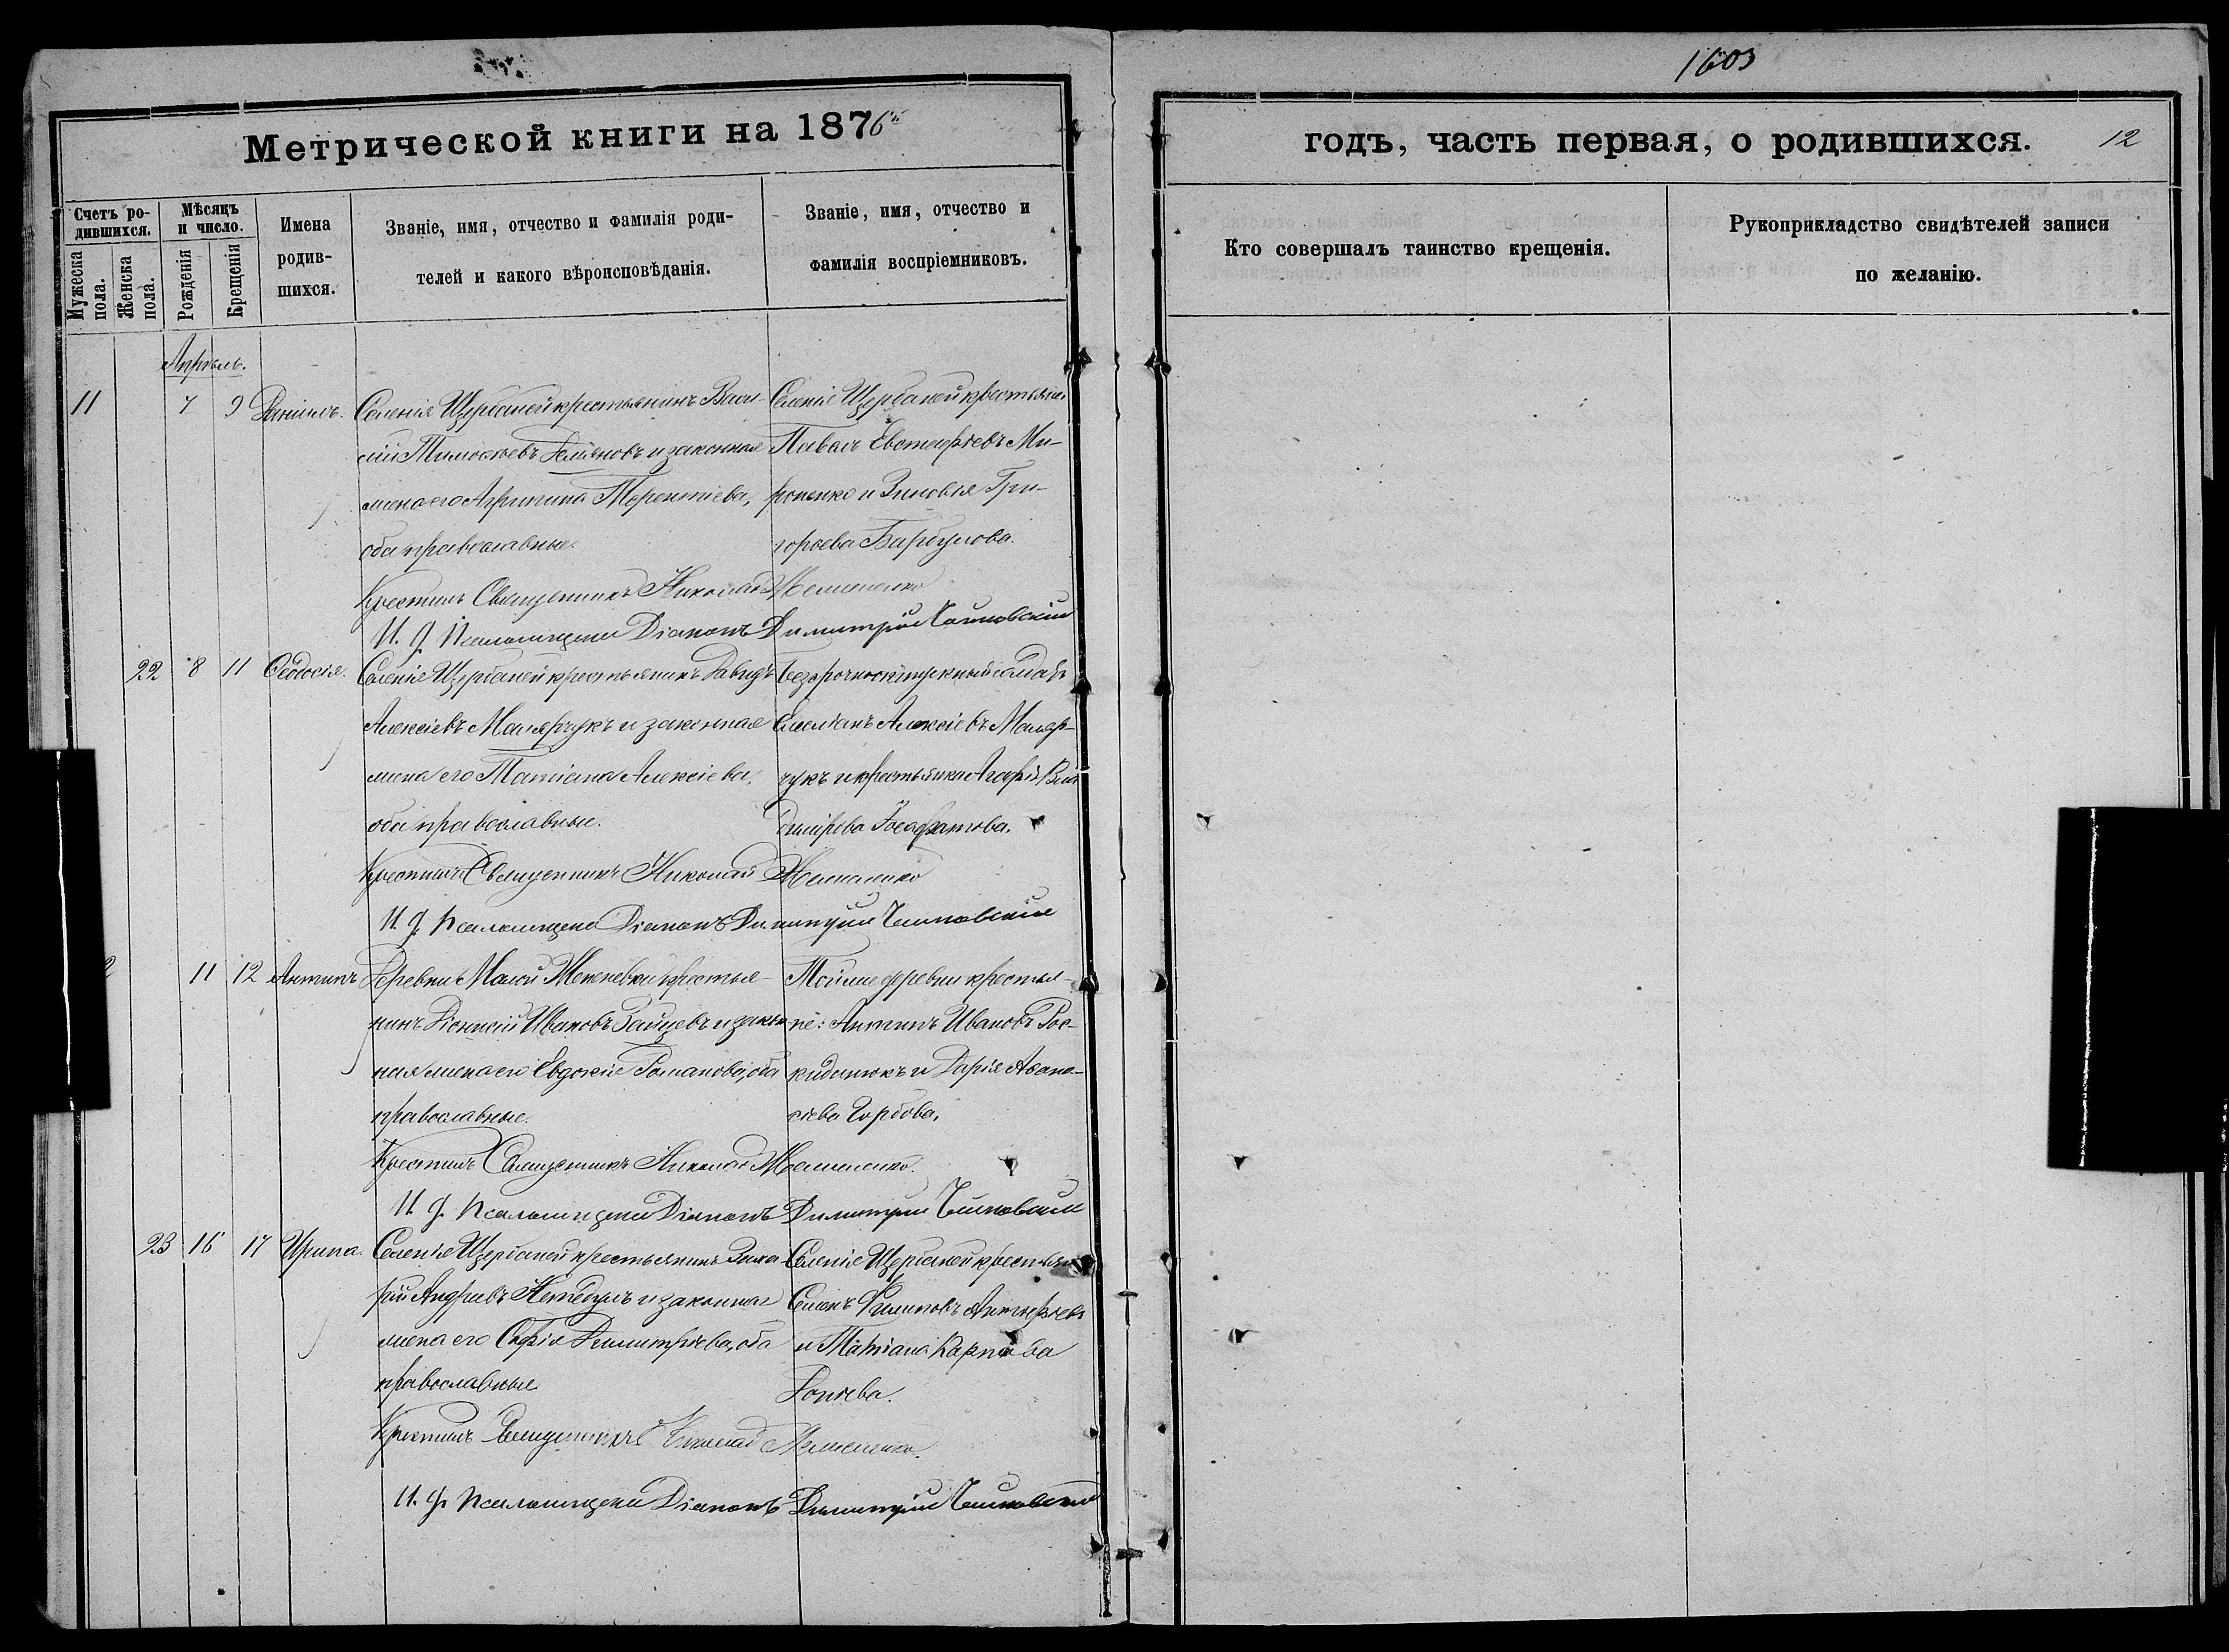 1603
Метрической книги на 1876й
годъ, часть первая, о родившихся. 12
Счетъ родившихся.
Мужеска пола.
Женска пола.
Мѣсяцъ и число.
Рожденія
Крещенія
Имена родившихся.
Званіе, имя, отчество и фамилія роди-
телей и какого вѣроисповѣданія.
Званіе, имя, отчество и
фамилія воспріемниковъ.
Кто совершалъ таинство крещенія.
Рукоприкладство свидѣтелей записи
по желанію.
Апрѣль.
11 7 9 Даніилъ. Селенія Щербаней крестьянинъ Васи-
лій Тимоѳеевъ и законная
жена его Агрипина Терентіева,
оба православные.
Селенія Щербаней крестьяне
Павелъ Евстафіевъ Ми-
роненко и Зиновія Гри-
горьева Барбулова.
Крестилъ Священникъ Николай
И. д. Псаломщика Діаконъ Димитрій
22 8 11 Ѳеодосія. Селенія Щербаней крестьянинъ Давидъ
Алексіевъ Малярчукъ и законная
жена его Татіана Алексіева,
оба православные.
Безсрочноотпускный солдатъ
Емеліанъ Алексіевъ Маляр-
чукъ и крестьянка Агафія Вла-
димірова Іосафатова.
Крестилъ Священникъ Николай
И. д. Псаломщика Діаконъ Димитрій
2 11 12 Антипъ Деревни Малой крестья-
нинъ Діонисій Ивановъ Зайцевъ и закон-
ная жена его Евдокія Романова, оба
православные.
Той же деревни крестья-
не: Антипъ Ивановъ Рос-
кидинюкъ и Дарія Аѳана-
сіева Горбова.
Крестилъ Священникъ Николай
И. д. Псаломщика Діаконъ Димитрій
23 16 17 Ирина. Селенія Щербаней крестьянинъ Заха-
рій Андреевъ и законная
жена его Софія Димитріева, оба
православные
Селенія Щербаней крестьяне
Семенъ Филиповъ
и Татіана Карпова
Крестилъ Священникъ Николай
И. д. Псаломщика Діаконъ Димитрій